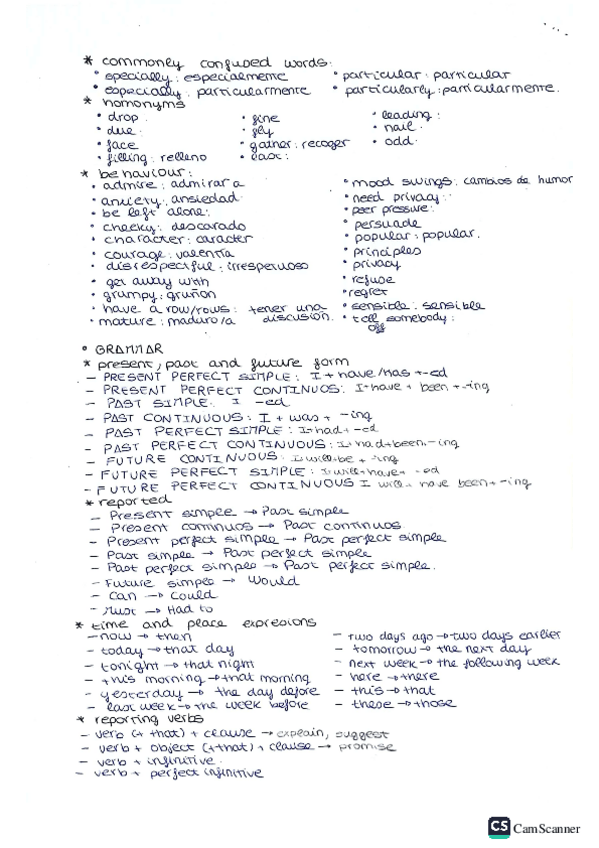 * commonly confused words:
• specially: especialmente • particular: particular
• especially: particularmente • particularly: particularmente.
* homonyms
• drop • fine • leading:
• due: • fly • nail
• face • gather: recoger • odd
• filling: relleno • last:
* behaviour:
• admire: admirar a • mood swings: cambios de humor
• anxiety: ansiedad • need privacy:
• be left alone: • peer pressure:
• cheeky: descarado • persuade
• character: caracter • popular: popular.
• courage: valentía • principles
• disrespectful: irrespetuoso • privacy
• get away with • refuse
• grumpy: gruñon • regret
• have a row/rows: tener una discusion. • sensible: sensible
• mature: maduro/a • tell somebody off:
• GRAMMAR
* present, past and future form
- PRESENT PERFECT SIMPLE: I + have/has + -ed
- PRESENT PERFECT CONTINUOS: I + have + been + -ing
- PAST SIMPLE: I -ed
- PAST CONTINUOUS: I + was + -ing
- PAST PERFECT SIMPLE: I + had + -ed
- PAST PERFECT CONTINUOUS: I + had + been + -ing
- FUTURE CONTINUOUS: I + will + be + -ing
- FUTURE PERFECT SIMPLE: I + will + have + -ed
- FUTURE PERFECT CONTINUOUS I will + have been + -ing
* reported
- Present simple → Past simple
- Present continuos → Past continuos
- Present perfect simple → Past perfect simple
- Past simple → Past perfect simple
- Past perfect simple → Past perfect simple.
- Future simple → Would
- Can → Could
- Must → Had to
* time and place expresions
- now → then - two days ago → two days earlier
- today → that day - tomorrow → the next day
- tonight → that night - next week → the following week
- this morning → that morning - here → there
- yesterday → the day before - this → that
- last week → the week before - these → those
* reporting verbs
- verb (+ that) + clause → explain, suggest
- verb + object (+ that) + clause → promise
- verb + infinitive
- verb + perfect infinitive
CS CamScanner